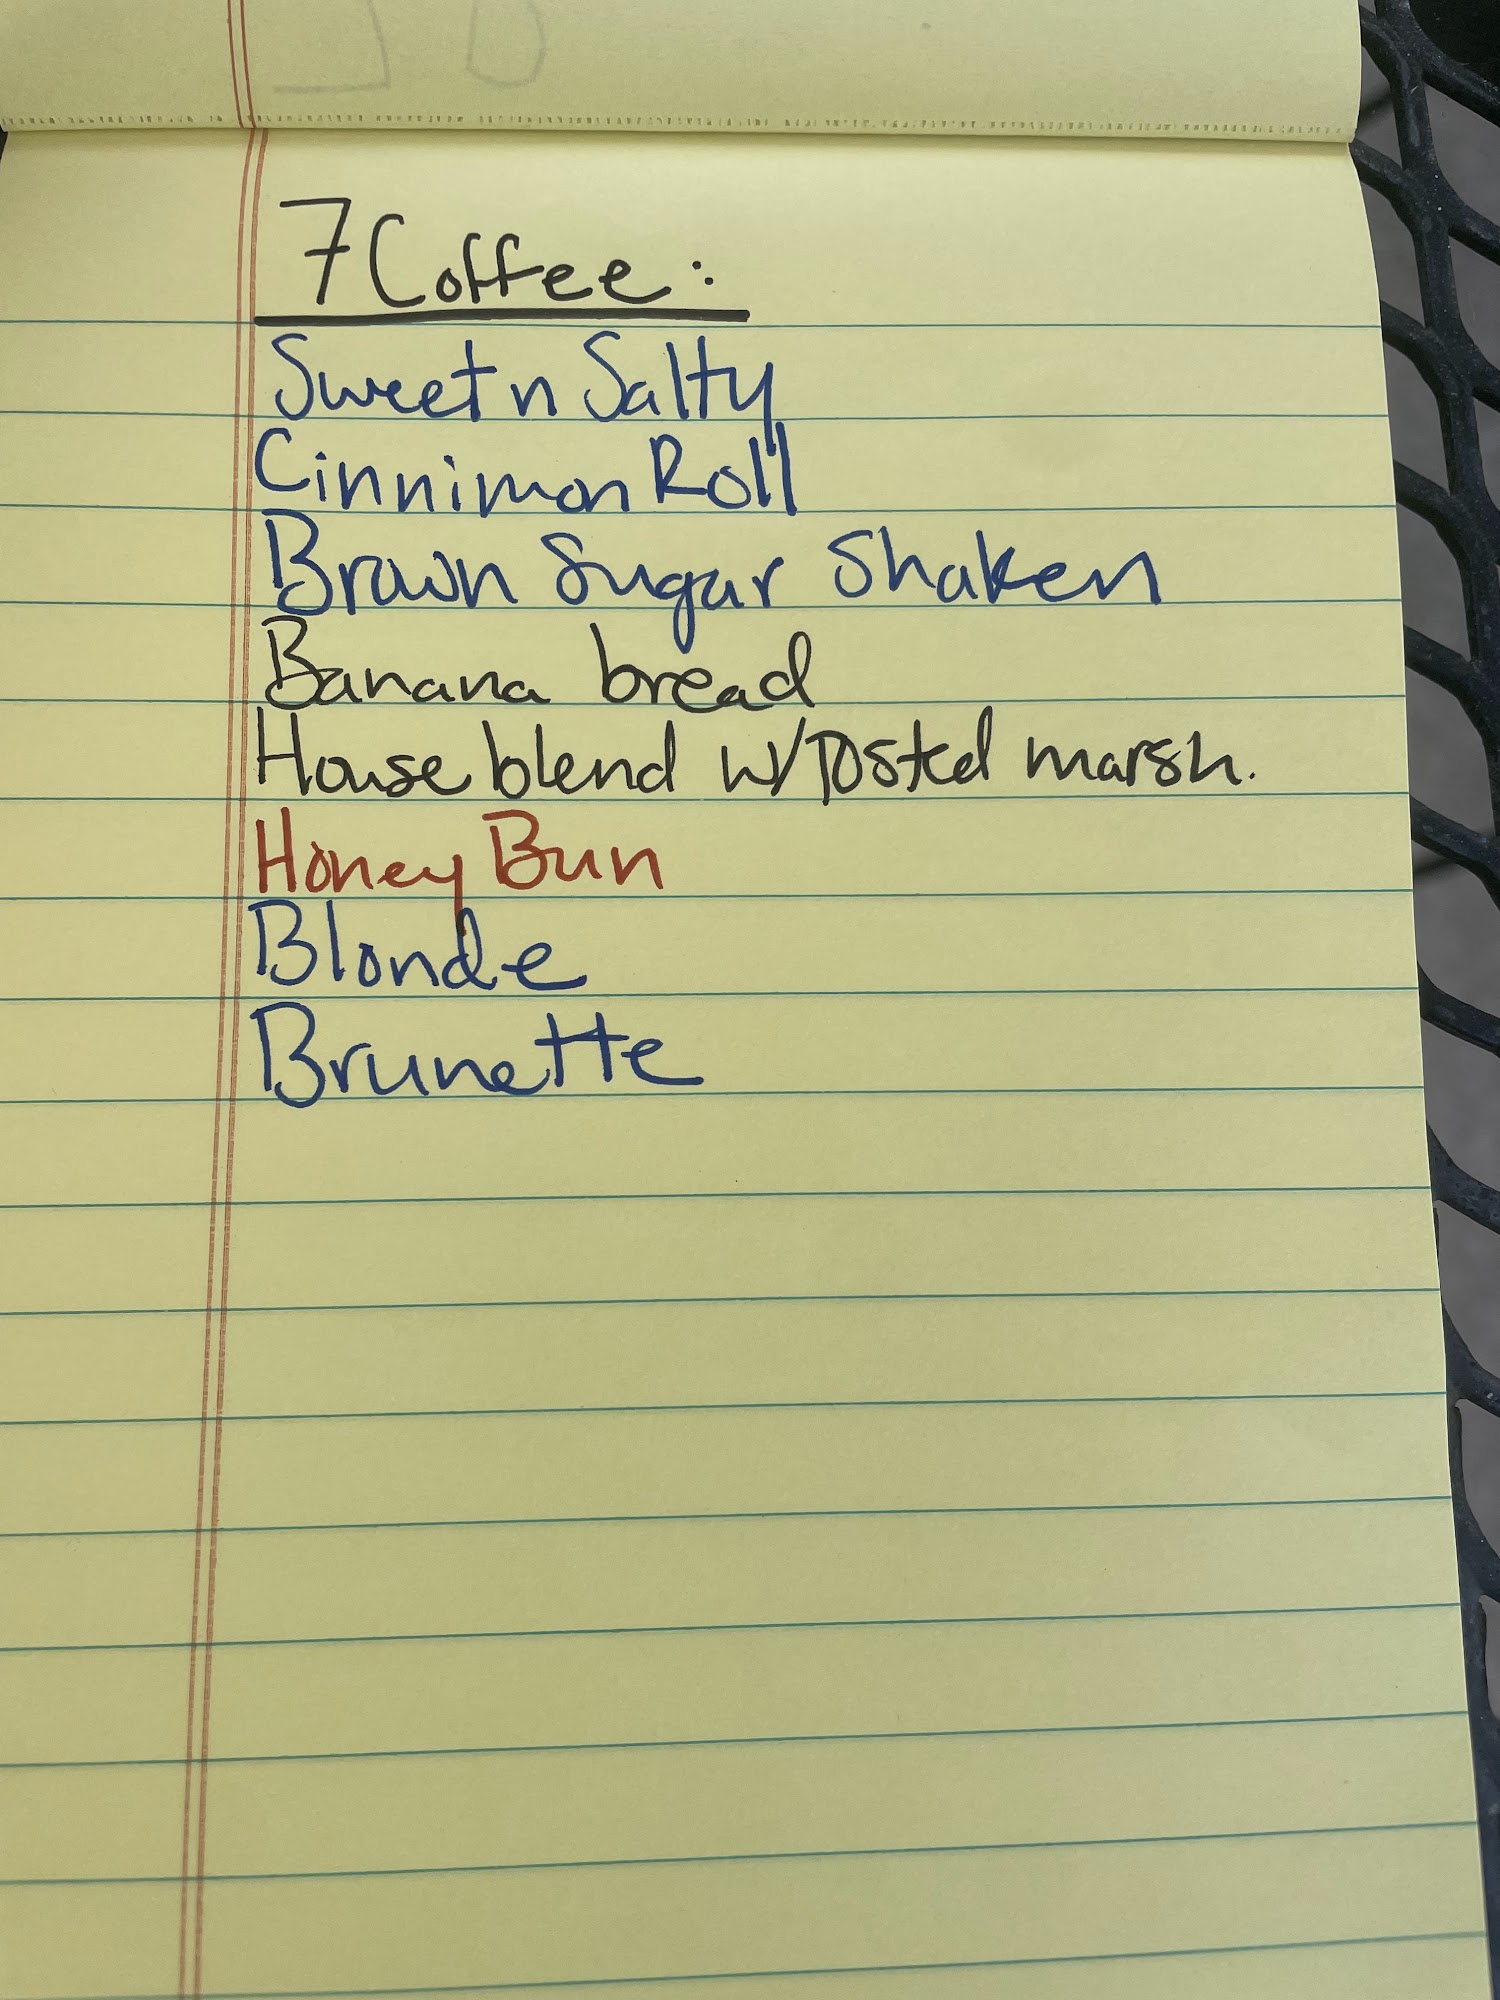 7 Coffee:
Sweet n Salty
Cinnimon Roll
Brown Sugar Shaken
Banana bread
House blend w/ Tosted marsh.
Honey Bun
Blonde
Brunette